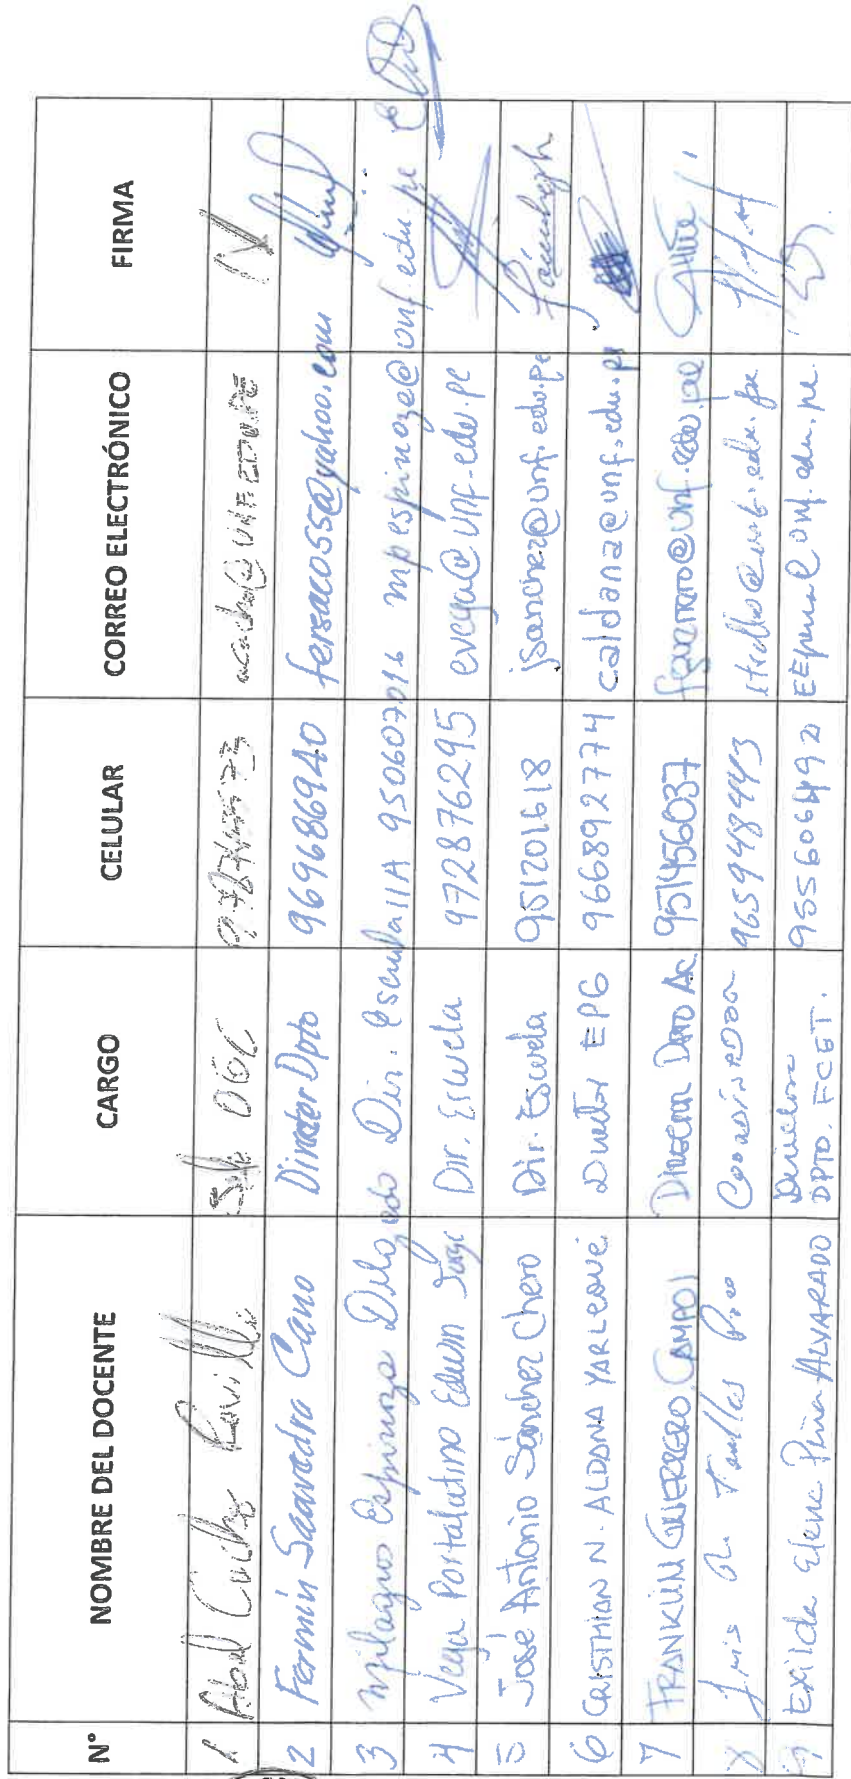 N° NOMBRE DEL DOCENTE CARGO CELULAR CORREO ELECTRÓNICO FIRMA
1 Abel DGC
2 Fermín Saavedra Cano Director Dpto 969686940 fersaco55@yahoo.com
3 Milagros Espinoza Delgado Dir. Escuela IIA 950607016 mpespinoza@unf.edu.pe
4 Vega Portalatino Edwin Jorge Dir. Escuela 972876295 evega@unf.edu.pe
5 José Antonio Sánchez Chero Dir. Escuela 951201618 jsanchez@unf.edu.pe
6 CRISTHIAN N. ALDANA YARLEQUÉ Director EPG 966892774 caldana@unf.edu.pe
7 FRANKLIN GUERRERO CAMPOS Dpto Ac. 951456037 fguerrero@unf.edu.pe
8 Luis COORDINADOR 965948443
9 Exilda Elena Peña ALVARADO Directora
DPTO. FCET. 955606492